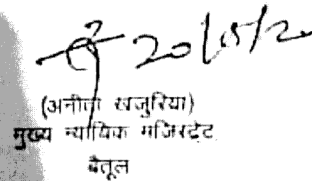 20/5/2
(अनीता खजुरिया)
मुख्य न्यायिक मजिस्ट्रेट
बैतूल